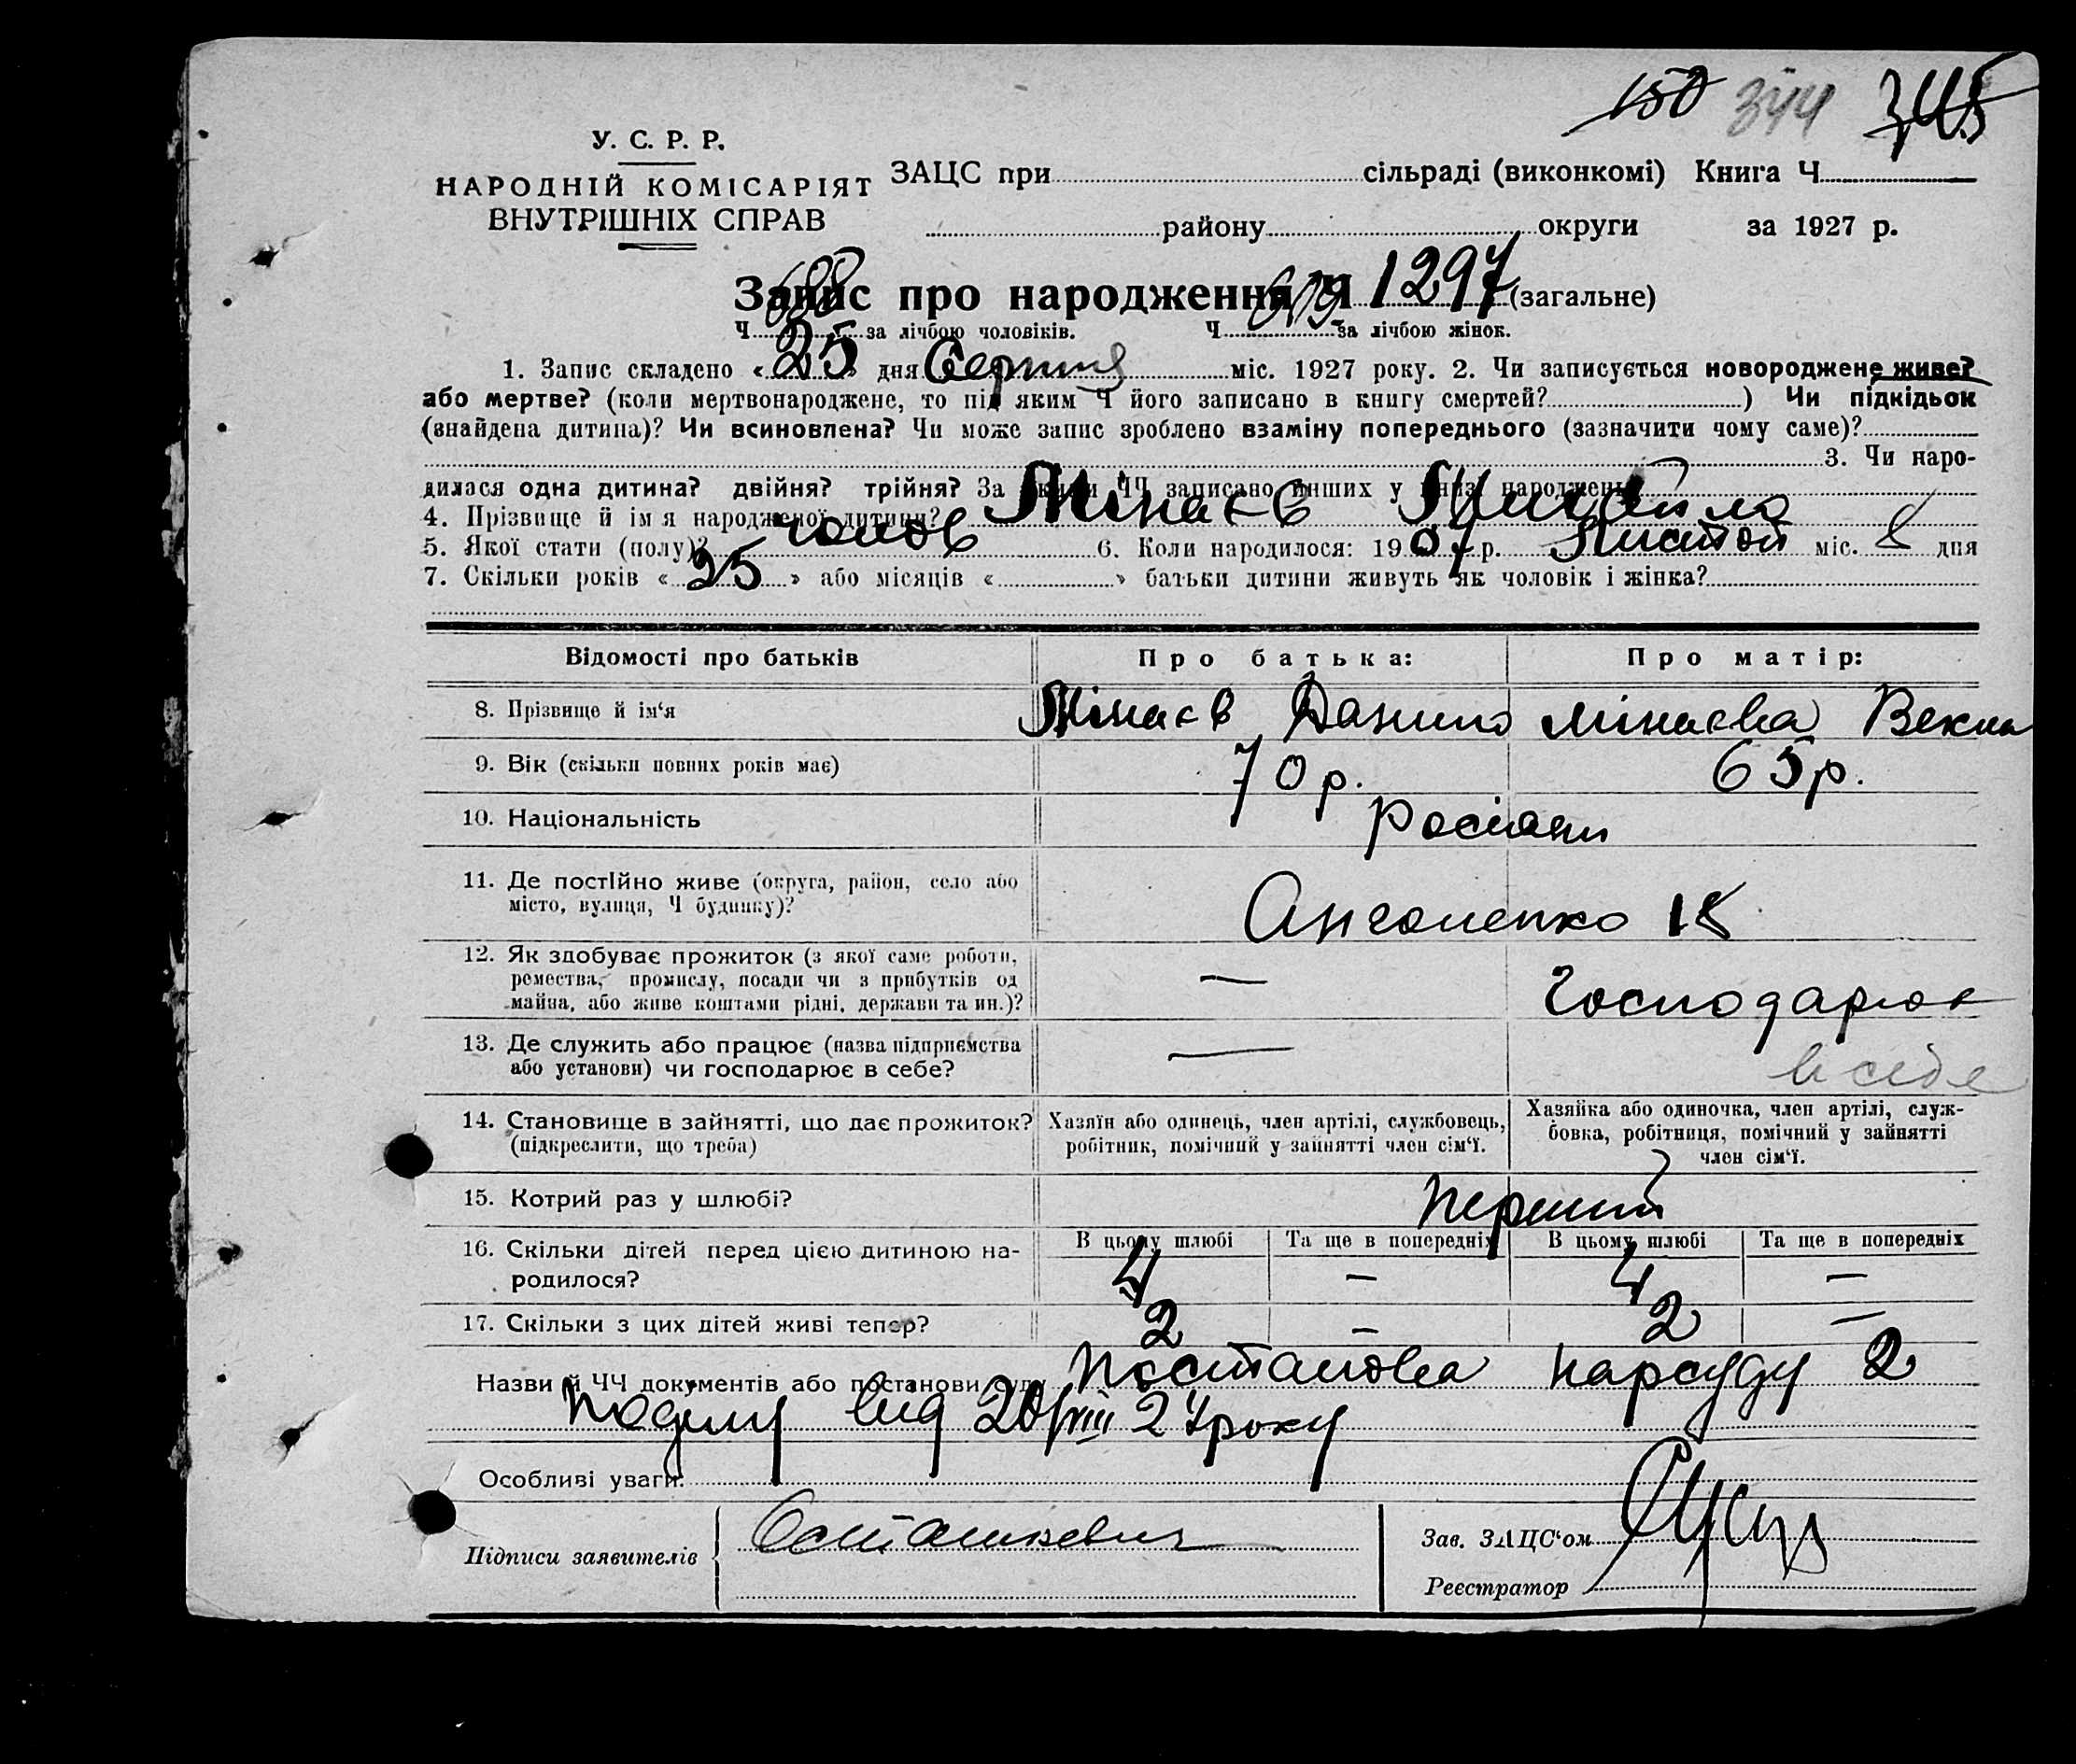 150 344 345
У. С. Р. Р.
НАРОДНІЙ КОМІСАРІЯТ
ВНУТРІШНІХ СПРАВ
ЗАЦС при сільраді (виконкомі) Книга Ч.
району округи за 1927 р.
Запис про народження Ч 1297 (загальне)
Ч. 688 за лічбою чоловіків. Ч. 609 за лічбою жінок.
1. Запис складено « 25 » дня Серпня міс. 1927 року. 2. Чи записується новороджене живе?
або мертве? (коли мертвонароджене, то під яким Ч його записано в книгу смертей? ) Чи підкідьок
(знайдена дитина)? Чи всиновлена? Чи може запис зроблено взаміну попереднього (зазначити чому саме)?
3. Чи наро-
дилася одна дитина? двійня? трійня? За якими ЧЧ записано инших у книзі народжень
4. Прізвище й ім'я народженої дитини? Мінаєв Михайло
5. Якої стати (полу)? чолов 6. Коли народилося: 1907 р. Листоп міс. 8 дня
7. Скільки років « 25 » або місяців « » батьки дитини живуть як чоловік і жінка?
Відомості про батьків Про батька: Про матір:
8. Прізвище й ім‘я Мінаєв Данило Мінаєва Векла
9. Вік (скільки повних років має) 70 р. 65 р.
10. Національність Росіяни
11. Де постійно живе (округа, район, село або
місто, вулиця, Ч будинку)? 18
12. Як здобуває прожиток (з якої саме роботи,
ремества, промислу, посади чи з прибутків од
майна, або живе коштами рідні, держави та ин.)? — Господарює
13. Де служить або працює (назва підприємства
або установи) чи господарює в себе? — в себе
14. Становище в зайнятті, що дає прожиток?
(підкреслити, що треба)
Хазяїн або одинець, член артілі, службовець,
робітник, помічний у зайнятті член сім‘ї.
Хазяйка або одиночка, член артілі, служ-
бовка, робітниця, помічний у зайнятті
член сім‘ї.
15. Котрий раз у шлюбі? перший
16. Скільки дітей перед цією дитиною на-
родилося?
В цьому шлюбі Та ще в попередніх В цьому шлюбі Та ще в попередніх
4 — 4 —
17. Скільки з цих дітей живі тепер? 2 — 2 —
Назви й ЧЧ документів або постанови суду Постанова нарсуду 2
Поділу від 20/VIII 24 року
Особливі уваги:
Підписи заявителів Осташкевич
Зав. ЗАЦС‘ом
Реєстратор